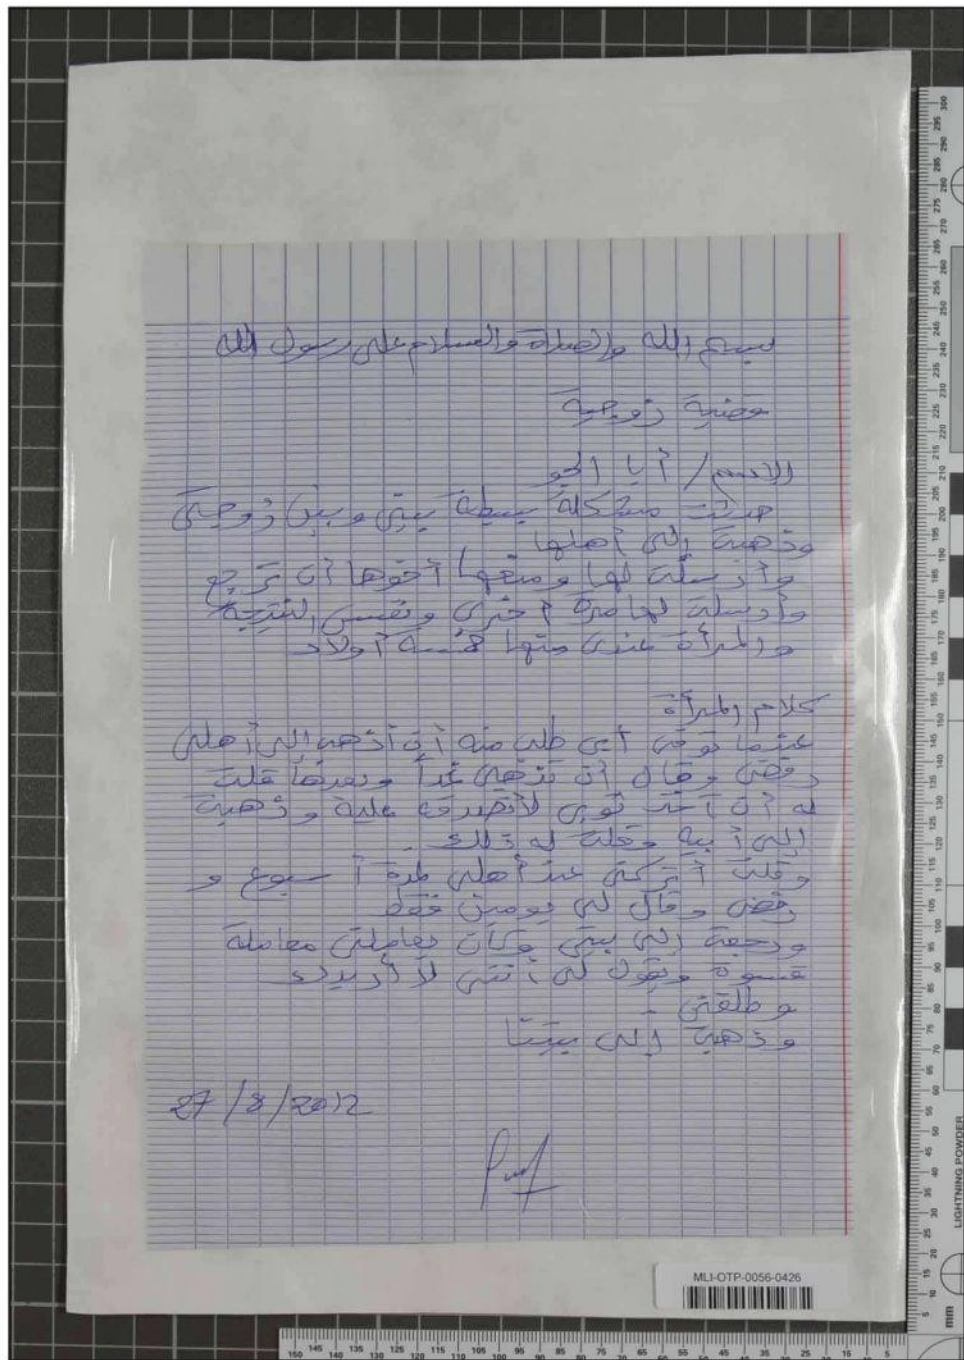 بسم الله والصلاة والسلام على رسول الله
قضية زوجية
الاسم/ أبا الجو
حدثت مشكلة بسيطة بيني وبين زوجتي
وذهبة إلى أهلها
وأرسلت لها ومنعها أخوها أن ترجع
وأرسلت لها مرة أخرى ونفس النتيجة
والمرأة عندي منها خمسة أولاد
كلام المرأة
عندما توفى أبي طلبة منه أن أذهب إلى أهلي
رفض وقال أن تذهبي غداً وبعدها قلت
له أن آخذ ثوبي لأتصدق عليه وذهبة
إلى أبيه وقلت له ذلك .
وقلت أتركني عند أهلي لمدة أسبوع و
رفض وقال لي يومين فقط
ورجعة إلى بيتي وكان يعاملني معاملة
قسوة ويقول لي أنني لا أريدك
وطلقني .
وذهبة إلى بيتنا
27/8/2012
MLI-OTP-0056-0426
LIGHTNING POWDER
mm